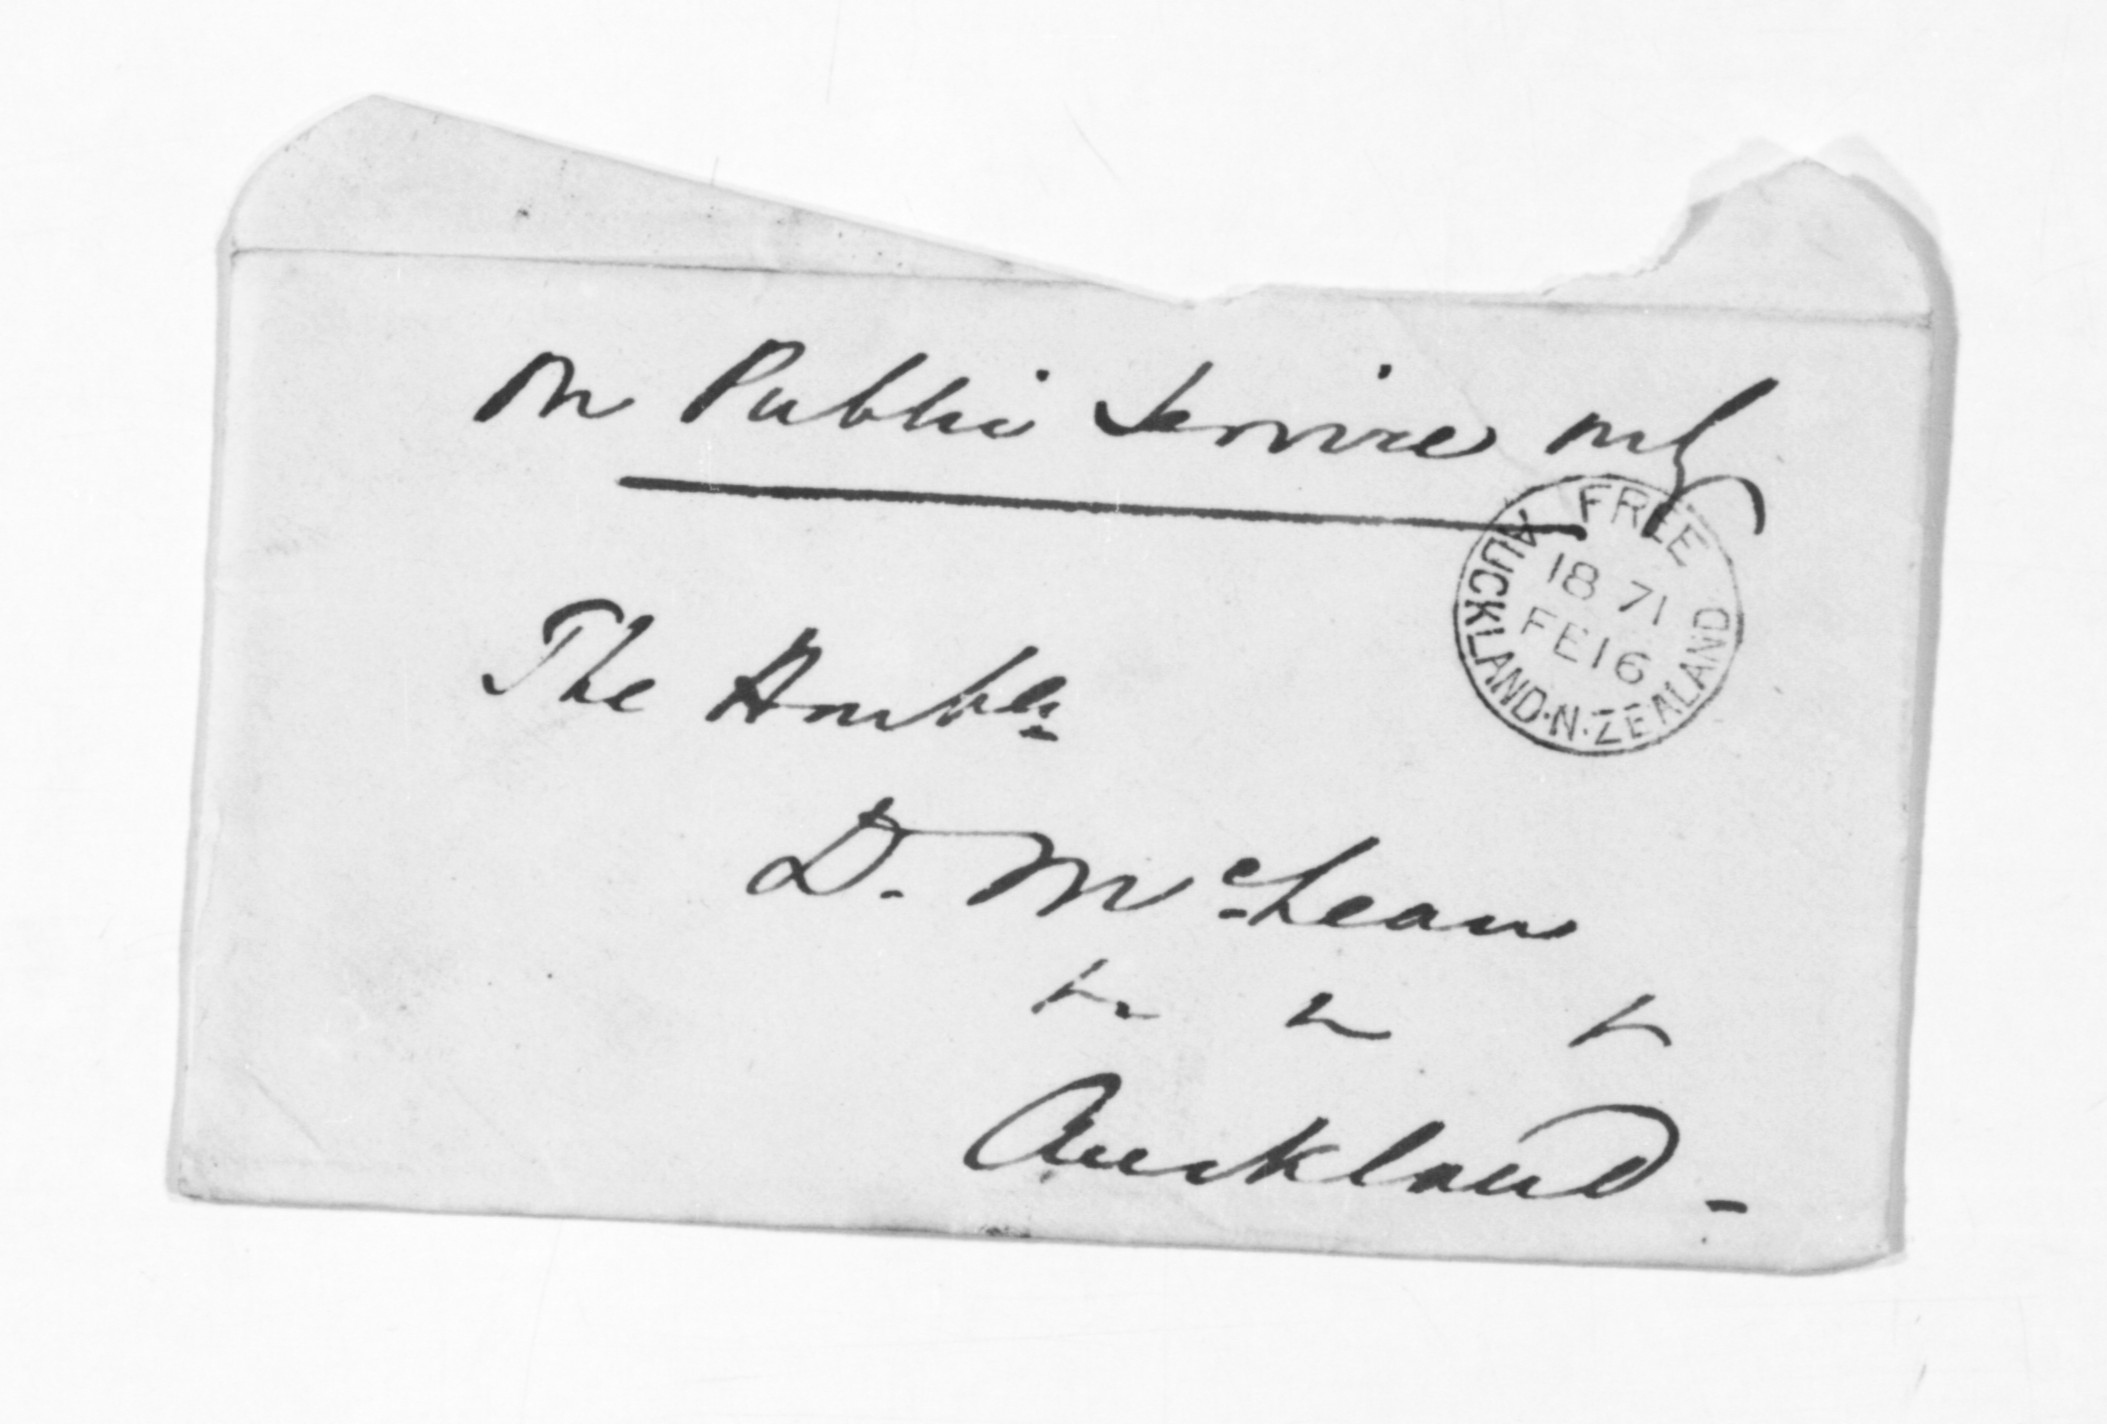 On Public Service only
The Honble
D. McLean
Auckland -
FREE
AUCKLAND·N·ZEALAND
18 71
FE 16